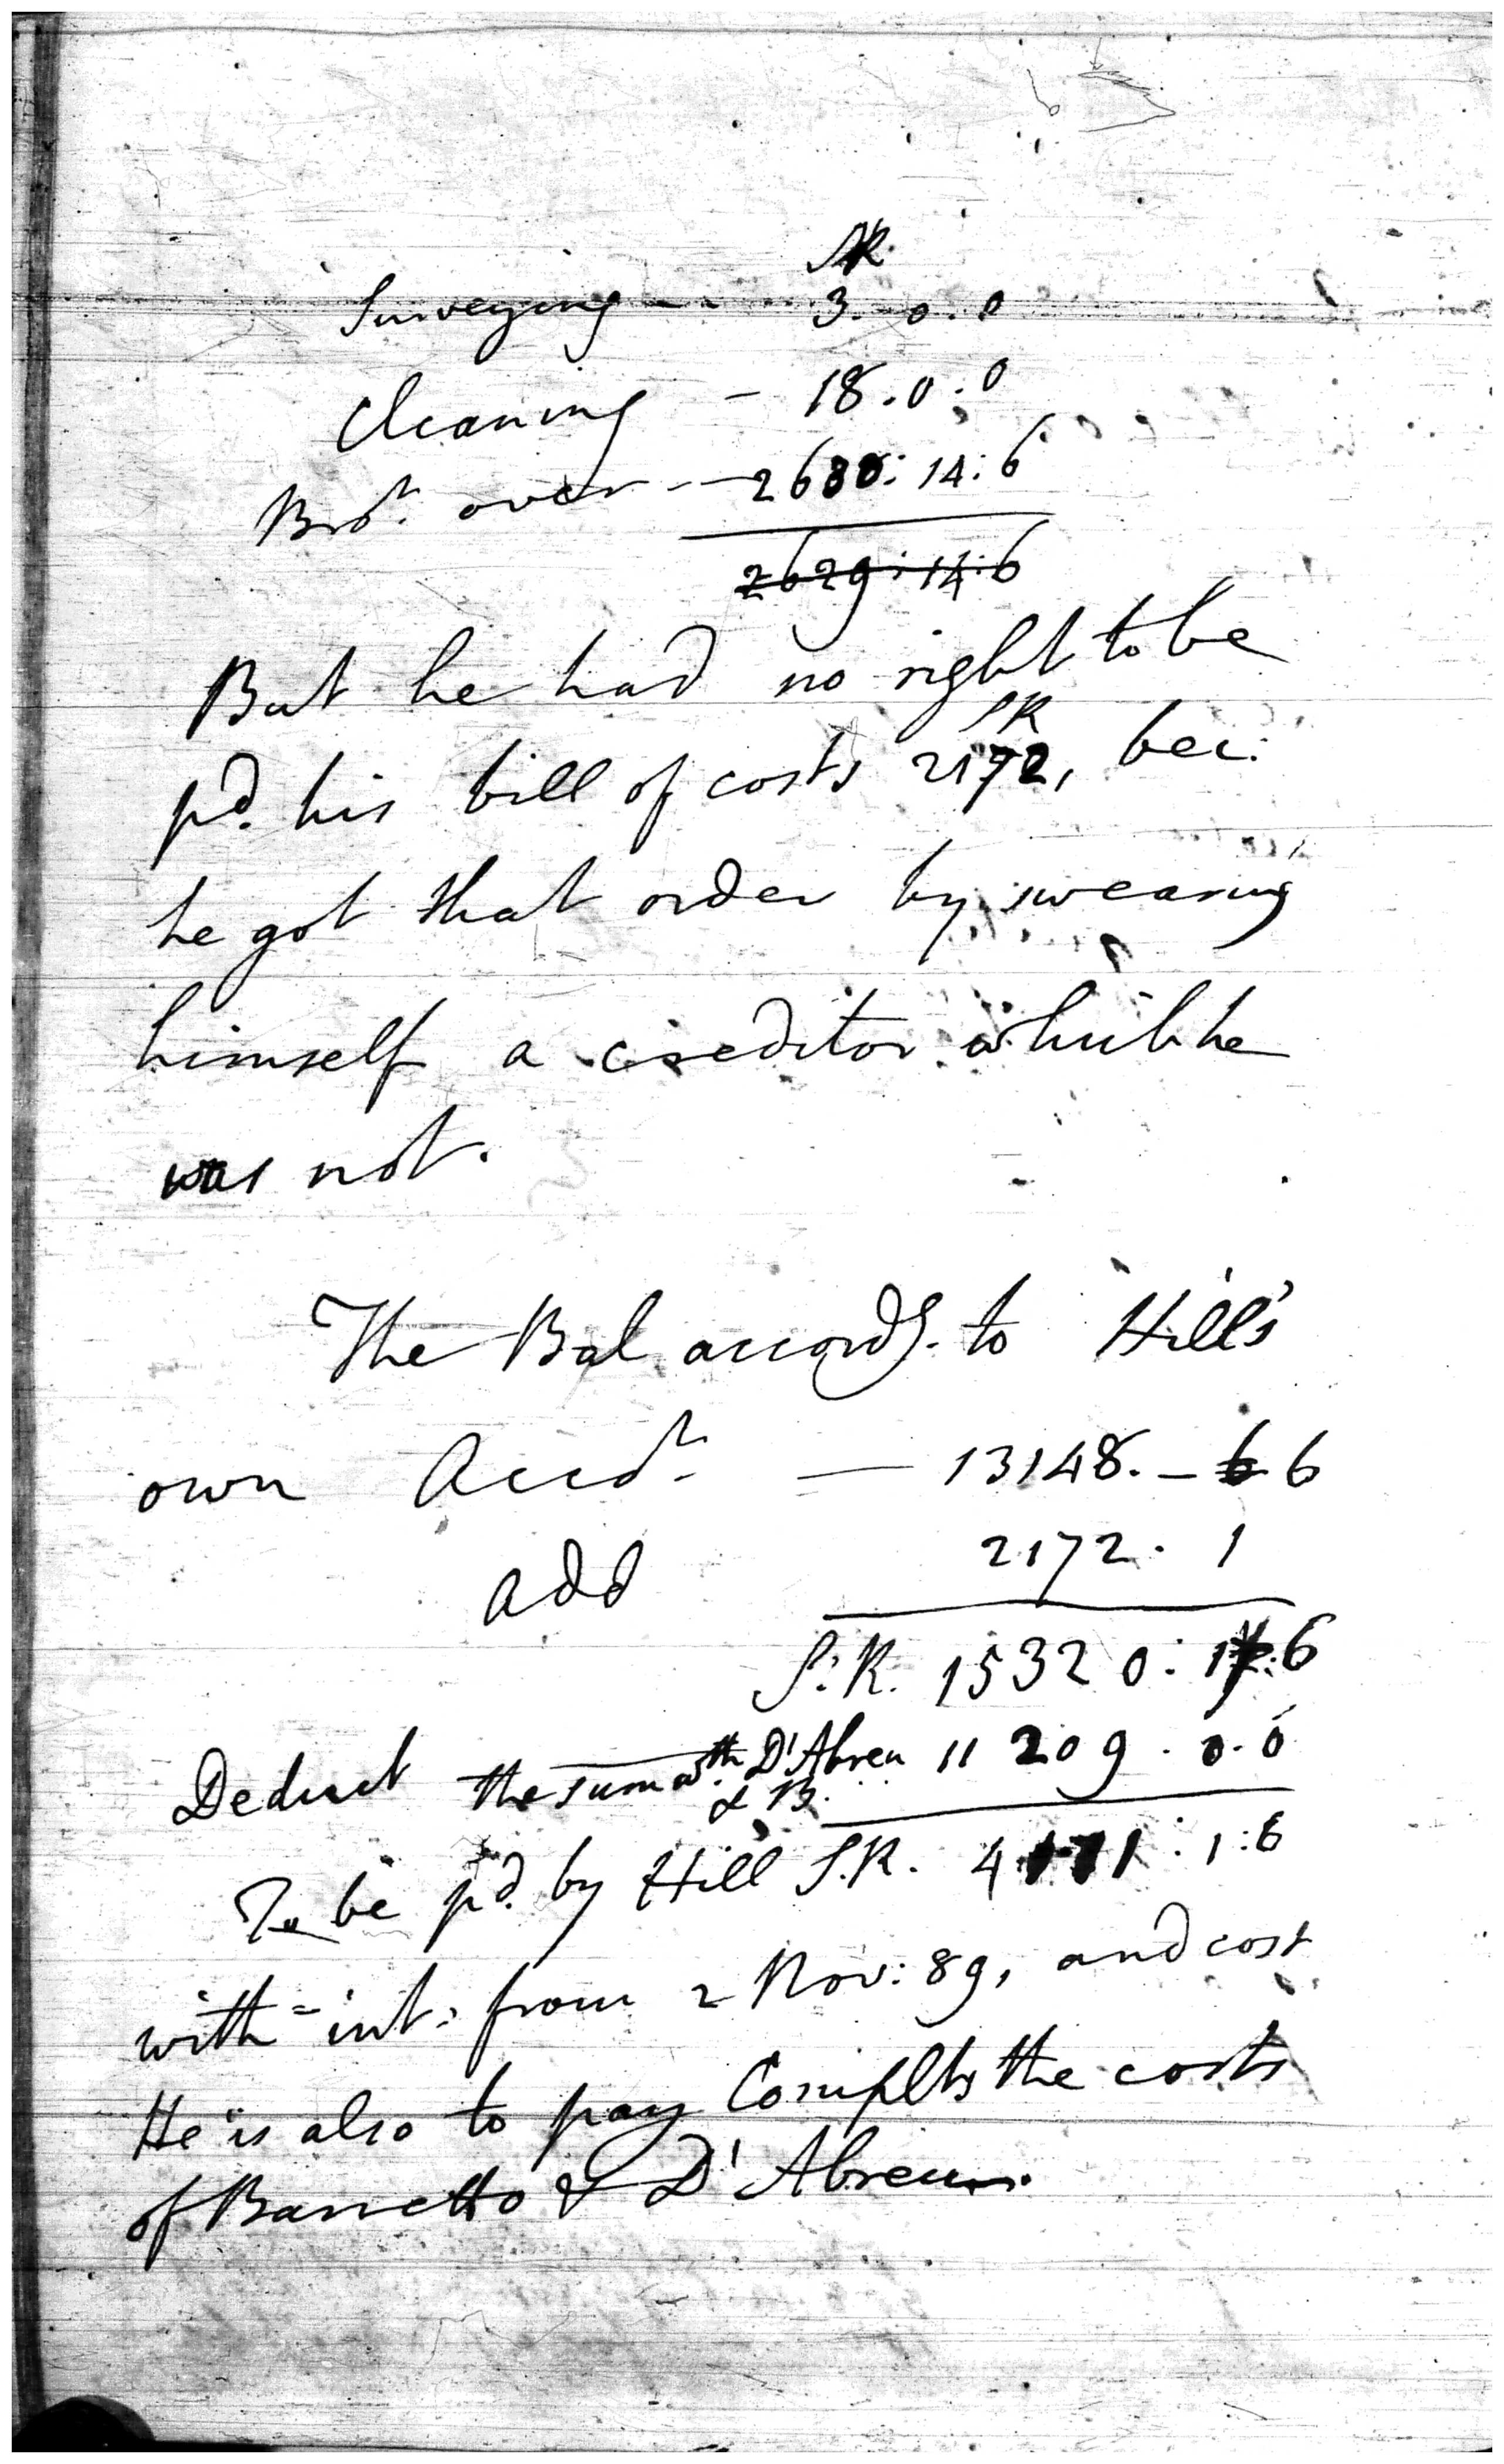 SR.
Surveying -- 3. 0. 0
Cleaning - 18. 0. 0
Brot. over -- 2630: 14: 6
2629: 14: 6
But he had no right to be
SR
pd. his bill of costs 2172, bec:
he got that order by swearing
himself a creditor which he
was not.
The Bal accordg. to Hill's
own Acct. — 13148. - 6 6
add 2172. 1
S.R. 15320: 1: 6
Deduct the sum wth. D'Abreu 11209. 0. 0
& B.
To be pd. by Hill S.R. 4111: 1: 6
with int. from 2 Nov: 89, and cost
He is also to pay Complts the costs
of Barretto & D'Abreu.